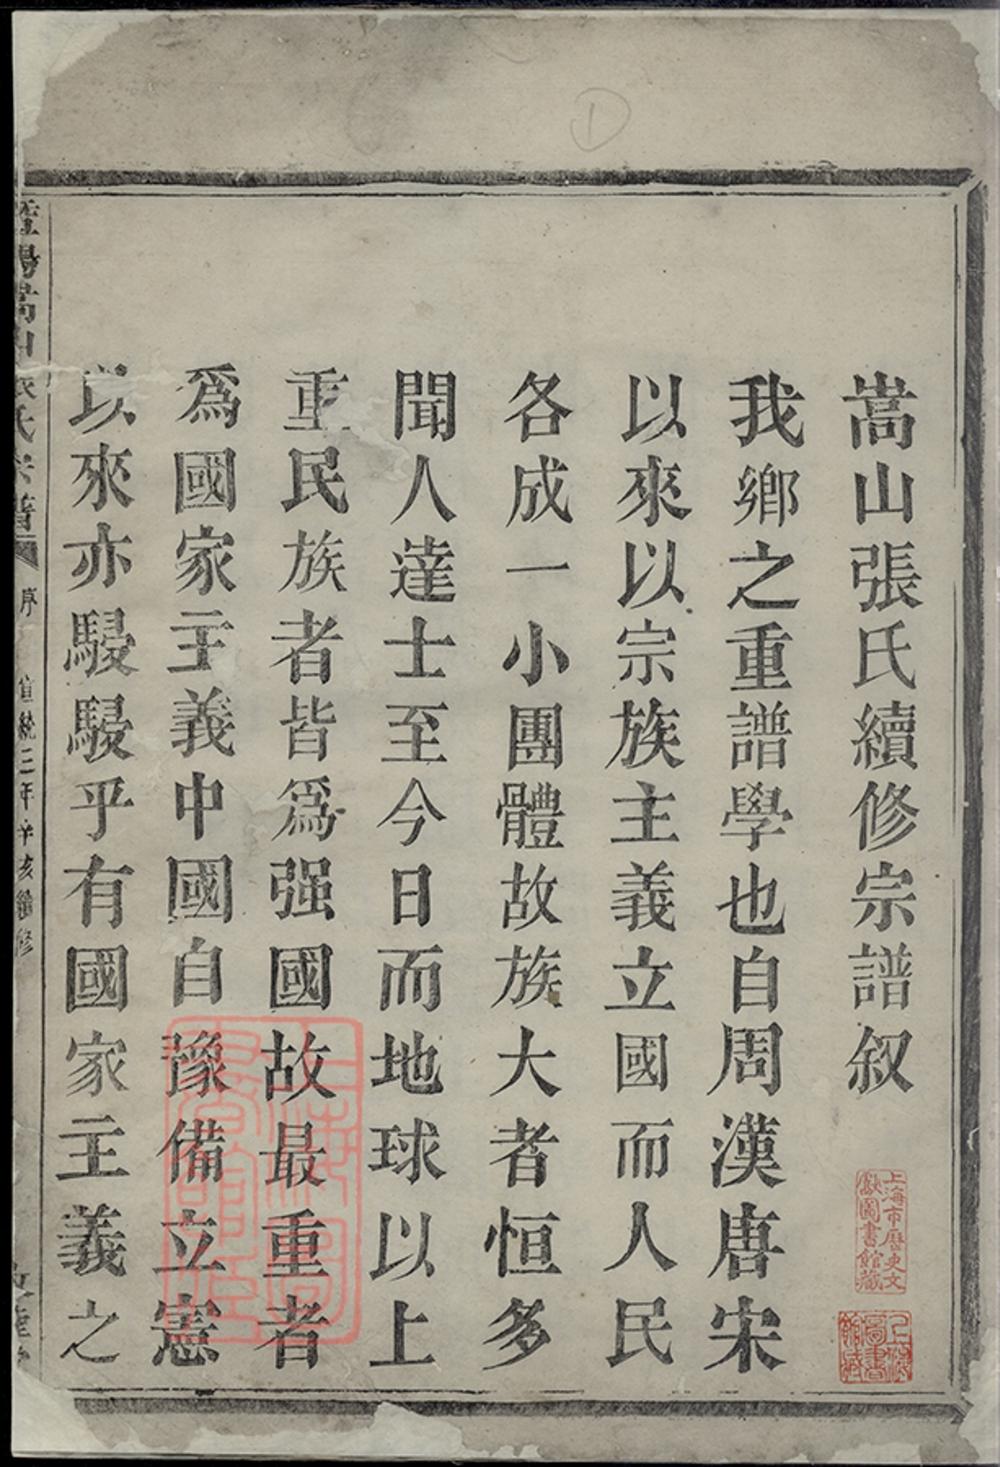 嵩山張氏續修宗譜叙
我鄉之重譜學也自周漢唐宋
以來以宗族主義立國而人民
各成一小團體故族大者恒多
聞人達士至今日而地球以上
重民族者皆爲强國故最重者
爲國家主義中國自豫備立憲
以來亦駸駸乎有國家主義之
暨陽嵩山張氏宗譜
序
宣統三年辛亥續修
上海市歷史文獻圖書館藏
上海圖書館藏
上海圖書館藏